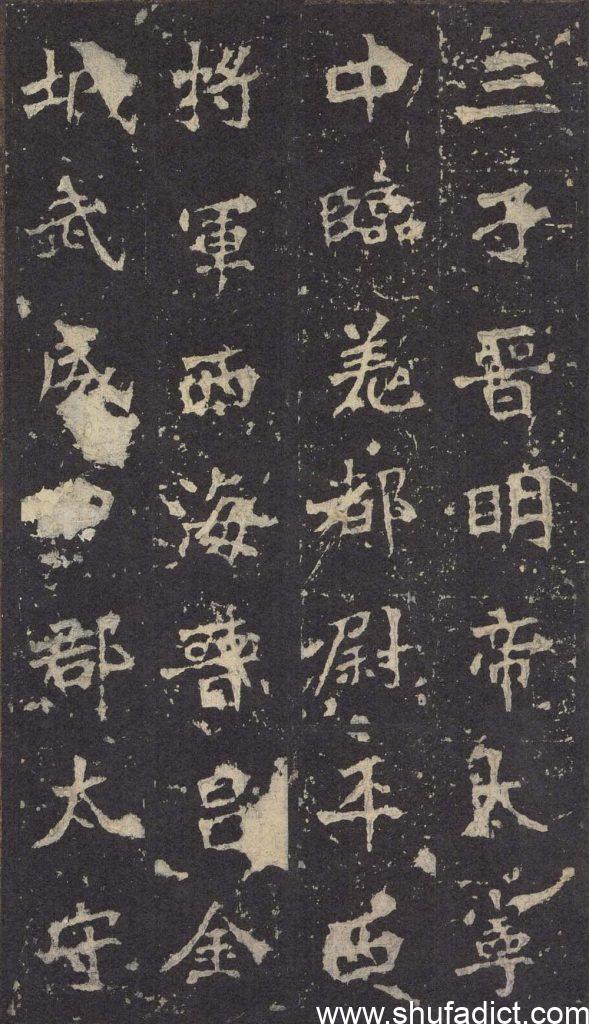 三子晉明帝太寧
中臨羌都尉平西
將軍西海晉昌金
城武威四郡太守
www.shufadict.com